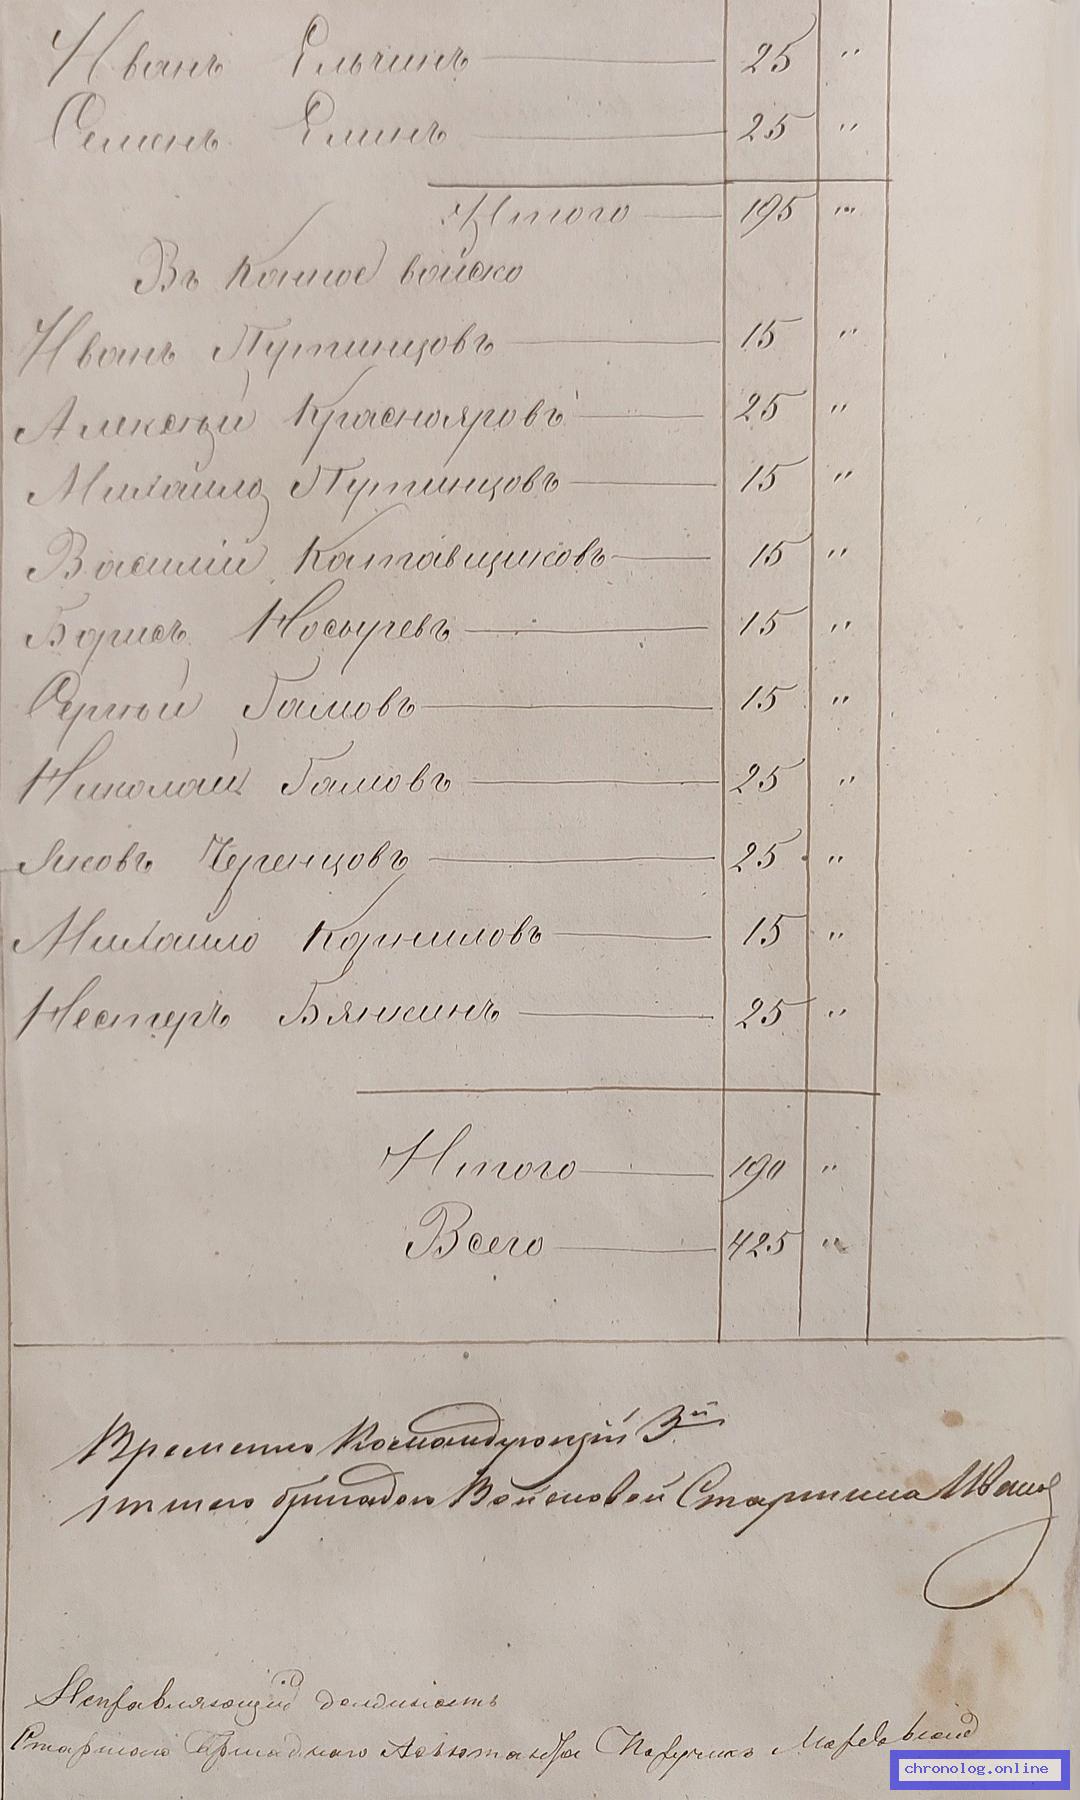 Иванъ Ельчинъ 25 "
Семенъ Елинъ 25 "
Итого 195 "
Въ Конное войско
Иванъ Путинцовъ 15 "
Алексѣй Краснояровъ 25 "
Михайло Путинцовъ 15 "
Василий Катавщиковъ 15 "
Борисъ Носыревъ 15 "
Сергѣй Гамовъ 15 "
Николай Гамовъ 25 "
Яковъ Черенцовъ 25 "
Михайло Корниловъ 15 "
Нестеръ Бянкинъ 25 "
Итого 190 "
Всего 425 "
Временно Командующій 3й
пѣшею бригадою Войсковой Старшина
Исправляющій должность
Старшаго Адъютанта Поручикъ
chronolog.online